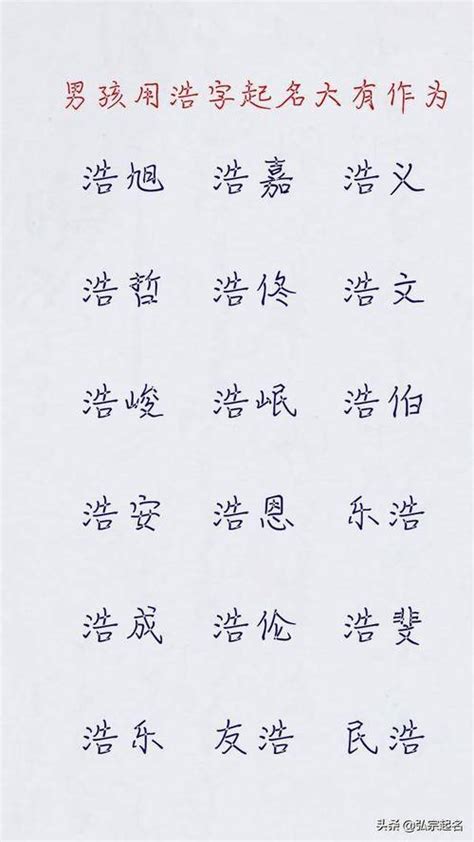 男孩用浩字起名大有作为
浩旭 浩嘉 浩义
浩哲 浩佟 浩文
浩峻 浩岷 浩伯
浩安 浩恩 乐浩
浩成 浩伦 浩斐
浩乐 友浩 民浩
头条 @弘宗起名